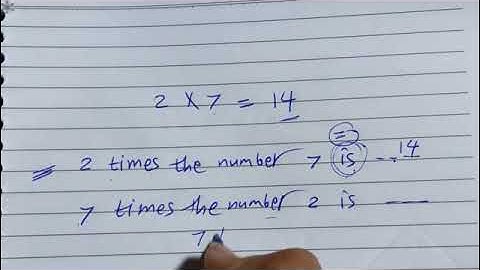 2 × 7 = 14
=
2 times the number 7 is -- 14
7 times the number 2 is ---
7